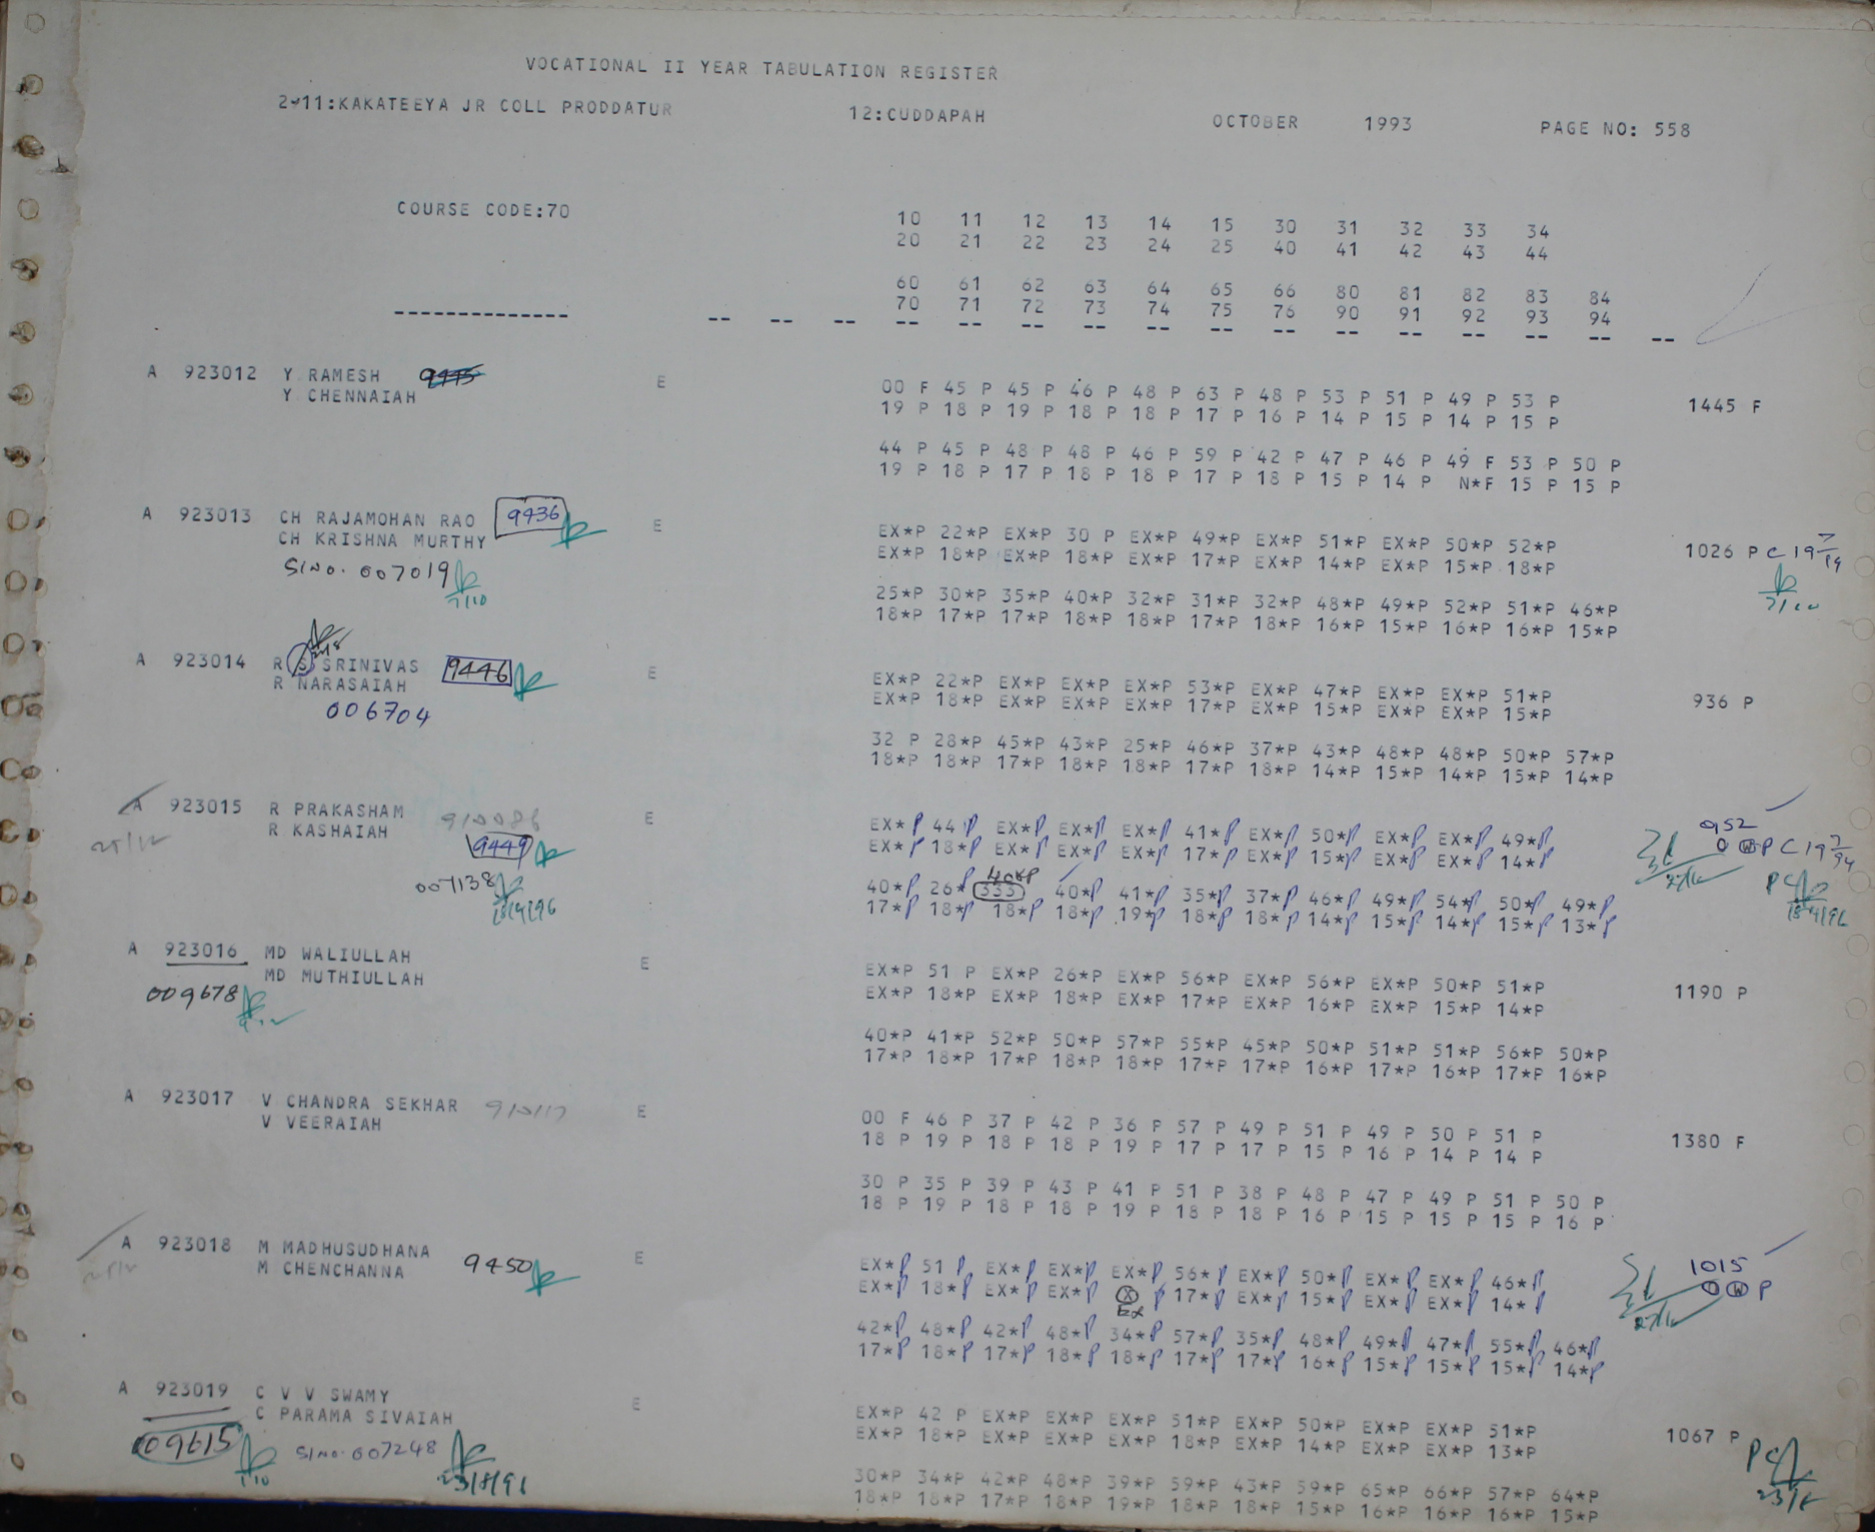 VOCATIONAL II YEAR TABULATION REGISTER
2-11:KAKATEEYA JR COLL PRODDATUR 12:CUDDAPAH OCTOBER 1993 PAGE NO: 558
COURSE CODE:70 10 11 12 13 14 15 30 31 32 33 34
20 21 22 23 24 25 40 41 42 43 44
60 61 62 63 64 65 66 80 81 82 83 84
70 71 72 73 74 75 76 90 91 92 93 94
------------- -- -- -- -- -- -- -- -- -- -- -- -- -- -- -- --
A 923012 Y RAMESH E 00 F 45 P 45 P 46 P 48 P 63 P 48 P 53 P 51 P 49 P 53 P 1445 F
Y CHENNAIAH 19 P 18 P 19 P 18 P 18 P 17 P 16 P 14 P 15 P 14 P 15 P
44 P 45 P 48 P 48 P 46 P 59 P 42 P 47 P 46 P 49 F 53 P 50 P
19 P 18 P 17 P 18 P 18 P 17 P 18 P 15 P 14 P N*F 15 P 15 P
A 923013 CH RAJAMOHAN RAO 9436 E EX*P 22*P EX*P 30 P EX*P 49*P EX*P 51*P EX*P 50*P 52*P 1026 P C 19
CH KRISHNA MURTHY EX*P 18*P EX*P 18*P EX*P 17*P EX*P 14*P EX*P 15*P 18*P
Slno. 007019
25*P 30*P 35*P 40*P 32*P 31*P 32*P 48*P 49*P 52*P 51*P 46*P
18*P 17*P 17*P 18*P 18*P 17*P 18*P 16*P 15*P 16*P 16*P 15*P
A 923014 R S SRINIVAS 9446 E EX*P 22*P EX*P EX*P EX*P 53*P EX*P 47*P EX*P EX*P 51*P 936 P
R NARASAIAH EX*P 18*P EX*P EX*P EX*P 17*P EX*P 15*P EX*P EX*P 15*P
006704
32 P 28*P 45*P 43*P 25*P 46*P 37*P 43*P 48*P 48*P 50*P 57*P
18*P 18*P 17*P 18*P 18*P 17*P 18*P 14*P 15*P 14*P 15*P 14*P
A 923015 R PRAKASHAM 910086 E EX*P 44 P EX*P EX*P EX*P 41*P EX*P 50*P EX*P EX*P 49*P 952
R KASHAIAH 9449 EX*P 18*P EX*P EX*P EX*P 17*P EX*P 15*P EX*P EX*P 14*P 0 W P C 19
007138
40*P 26*P 333 40*P 40*P 41*P 35*P 37*P 46*P 49*P 54*P 50*P 49*P
17*P 18*P 18*P 18*P 19*P 18*P 18*P 14*P 15*P 14*P 15*P 13*P
A 923016 MD WALIULLAH E EX*P 51 P EX*P 26*P EX*P 56*P EX*P 56*P EX*P 50*P 51*P 1190 P
MD MUTHIULLAH EX*P 18*P EX*P 18*P EX*P 17*P EX*P 16*P EX*P 15*P 14*P
009678
40*P 41*P 52*P 50*P 57*P 55*P 45*P 50*P 51*P 51*P 56*P 50*P
17*P 18*P 17*P 18*P 18*P 17*P 17*P 16*P 17*P 16*P 17*P 16*P
A 923017 V CHANDRA SEKHAR E 00 F 46 P 37 P 42 P 36 P 57 P 49 P 51 P 49 P 50 P 51 P 1380 F
V VEERAIAH 18 P 19 P 18 P 18 P 19 P 17 P 17 P 15 P 16 P 14 P 14 P
30 P 35 P 39 P 43 P 41 P 51 P 38 P 48 P 47 P 49 P 51 P 50 P
18 P 19 P 18 P 18 P 19 P 18 P 18 P 16 P 15 P 15 P 15 P 16 P
A 923018 M MADHUSUDHANA 9450 E EX*P 51 P EX*P EX*P EX*P 56*P EX*P 50*P EX*P EX*P 46*P 1015
M CHENCHANNA EX*P 18*P EX*P EX*P X P 17*P EX*P 15*P EX*P EX*P 14*P 0 W P
EX
42*P 48*P 42*P 48*P 34*P 57*P 35*P 48*P 49*P 47*P 55*P 46*P
17*P 18*P 17*P 18*P 18*P 17*P 17*P 16*P 15*P 15*P 15*P 14*P
A 923019 C V V SWAMY E EX*P 42 P EX*P EX*P EX*P 51*P EX*P 50*P EX*P EX*P 51*P 1067 P
C PARAMA SIVAIAH EX*P 18*P EX*P EX*P EX*P 18*P EX*P 14*P EX*P EX*P 13*P
009615 Slno. 007248
30*P 34*P 42*P 48*P 39*P 59*P 43*P 59*P 65*P 66*P 57*P 64*P
18*P 18*P 17*P 18*P 19*P 18*P 18*P 15*P 16*P 16*P 16*P 15*P